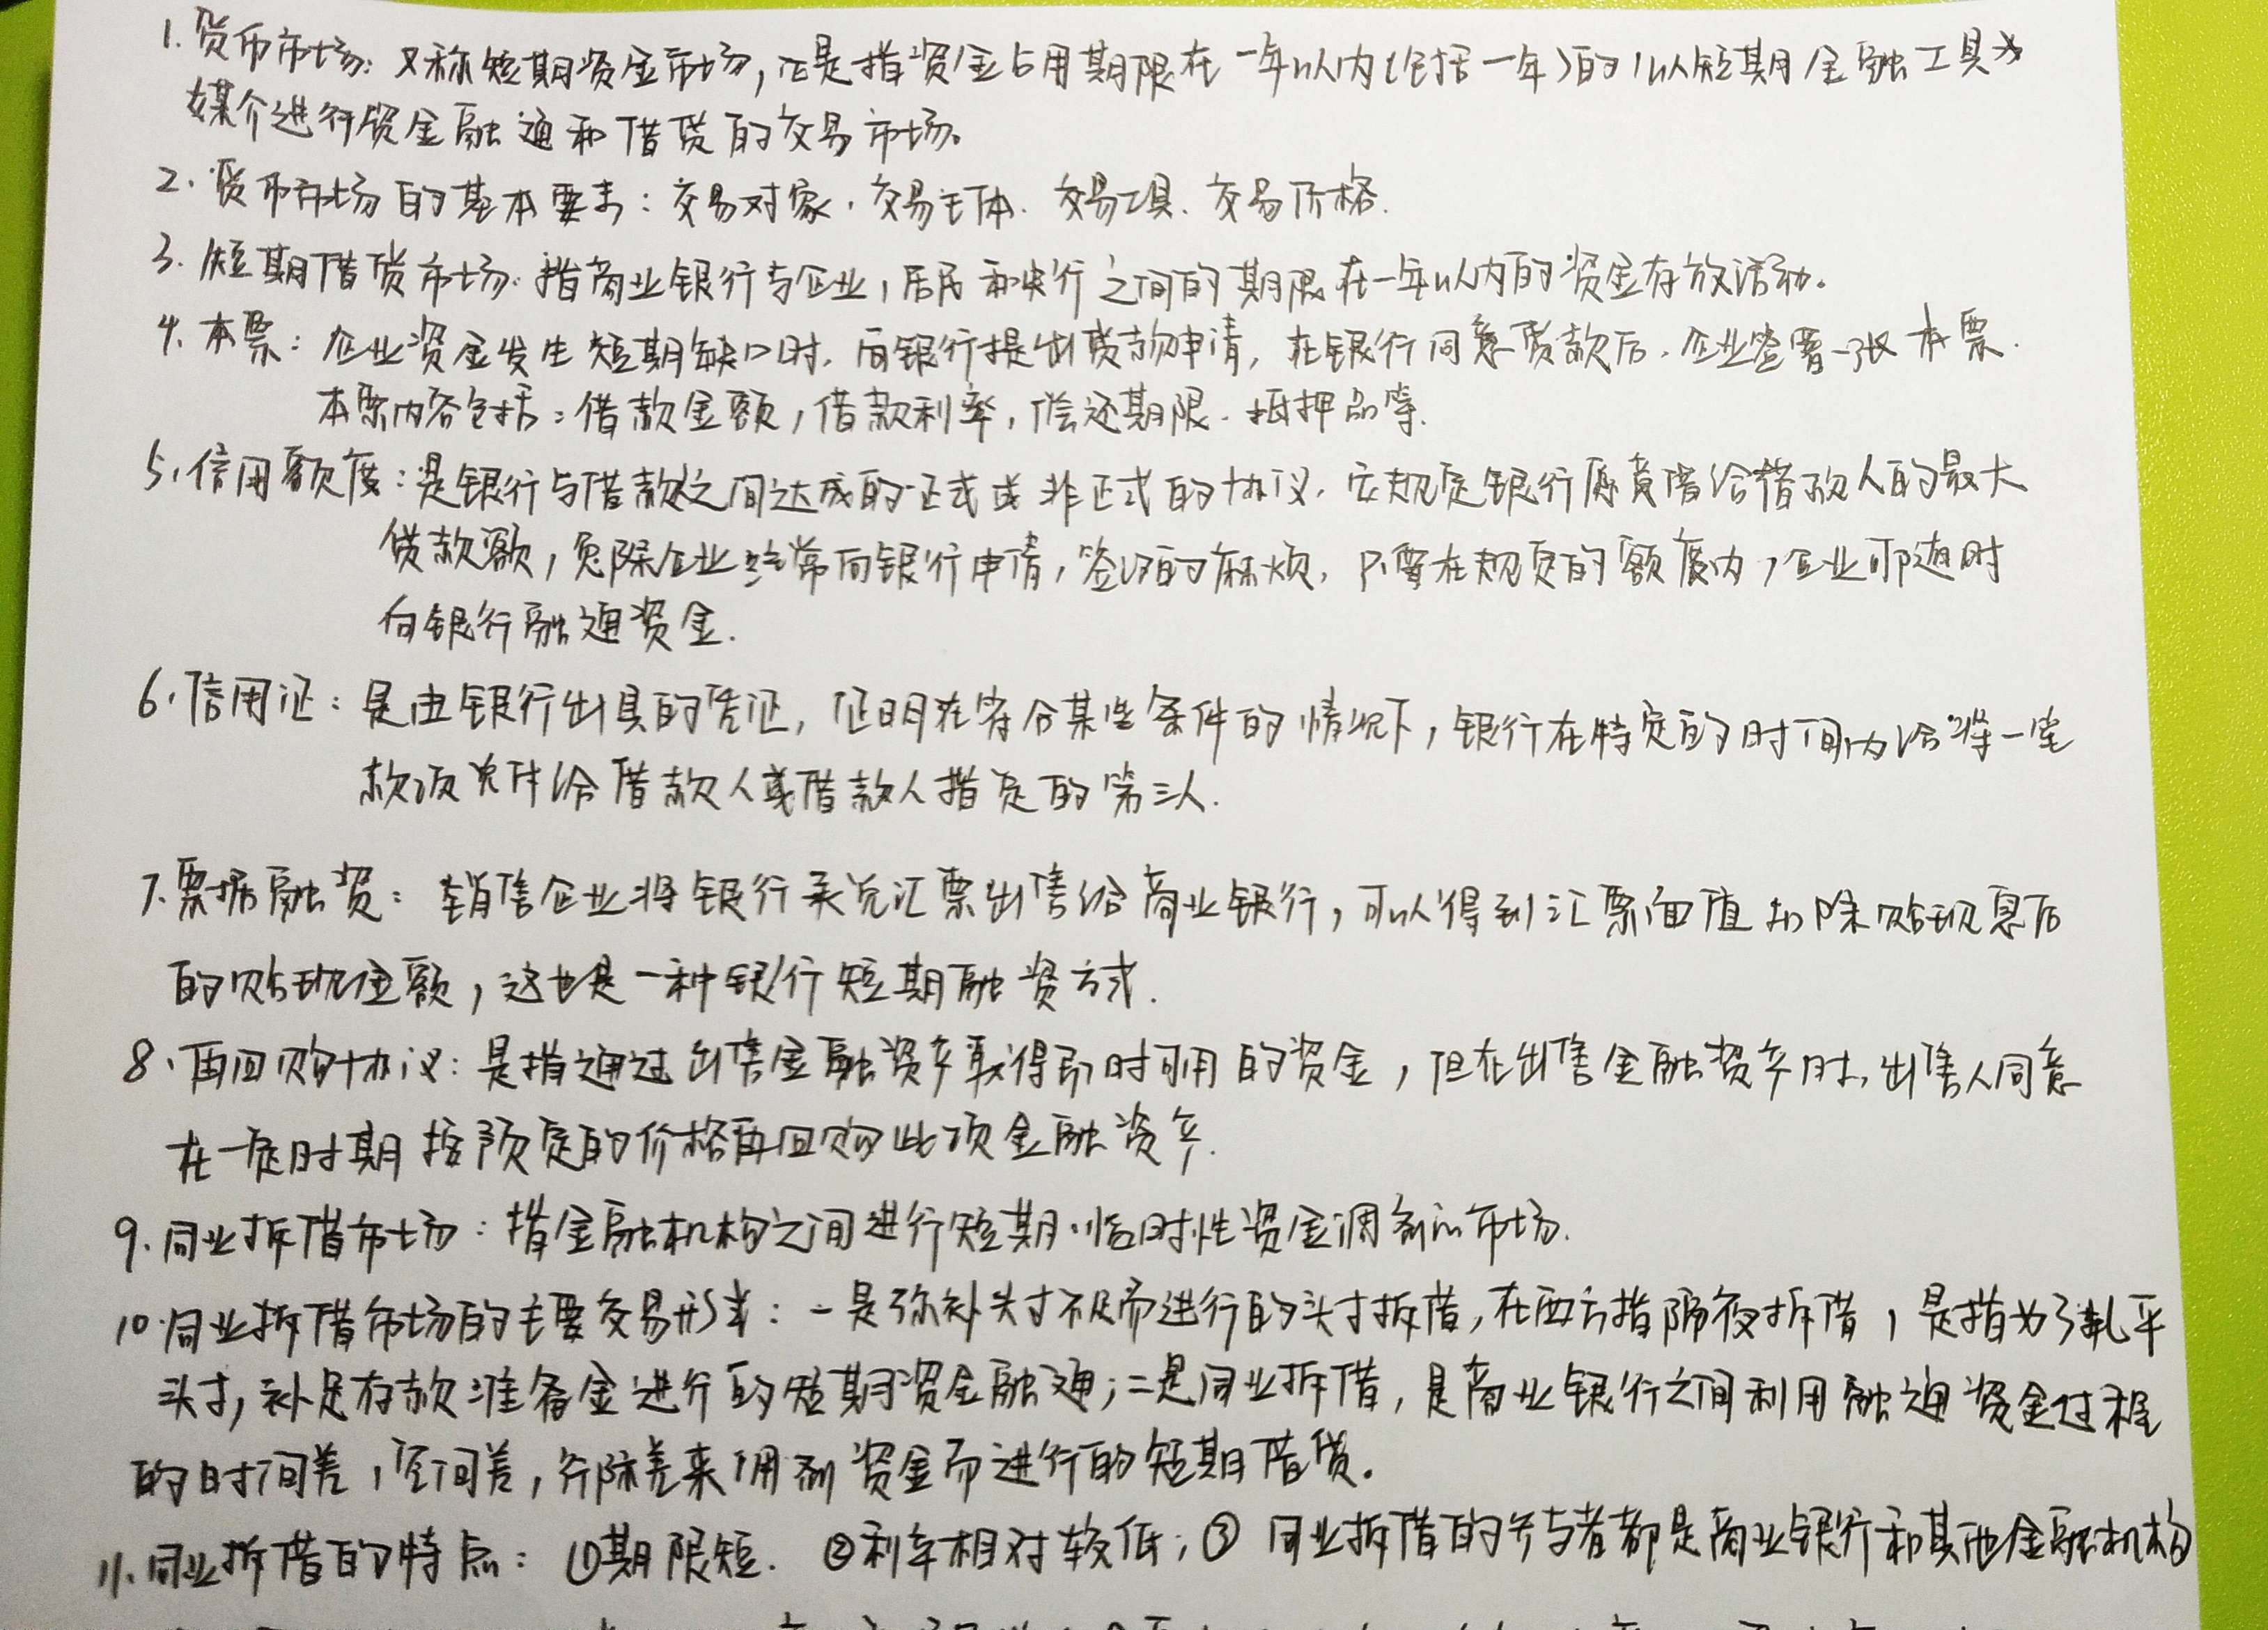 1. 货币市场：又称短期资金市场，它是指资金占用期限在一年以内（包括一年）的，以短期金融工具为
媒介进行资金融通和借贷的交易市场。
2. 货币市场的基本要素：交易对象、交易主体、交易工具、交易价格.
3. 短期借贷市场：指商业银行与企业，居民和央行之间的期限在一年以内的资金存放活动。
4. 本票：企业资金发生短期缺口时，向银行提出贷款申请，在银行同意贷款后，企业签署一张本票.
本票内容包括：借款金额，借款利率，偿还期限、抵押品等.
5. 信用额度：是银行与借款人之间达成的正式或非正式的协议，它规定银行愿意借给借款人的最大
贷款额，免除企业经常向银行申请，签约的麻烦，只要在规定的额度内，企业可随时
向银行融通资金.
6. 信用证：是由银行出具的凭证，证明在符合某些条件的情况下，银行在特定的时间内将一笔
款项兑付给借款人或借款人指定的第三人.
7. 票据融资：销售企业将银行承兑汇票出售给商业银行，可以得到汇票面值扣除贴现息后
的贴现金额，这也是一种银行短期融资方式.
8. 再回购协议：是指通过出售金融资产取得即时可用的资金，但在出售金融资产时，出售人同意
在一定时期按预定的价格再回购此项金融资产.
9. 同业拆借市场：指金融机构之间进行短期、临时性资金调剂的市场.
10. 同业拆借市场的主要交易形式：一是弥补头寸不足而进行的头寸拆借，在西方指隔夜拆借，是指为了轧平
头寸，补足存款准备金进行的短期资金融通；二是同业拆借，是商业银行之间利用融通资金过程
的时间差，空间差，行际差来调剂资金而进行的短期借贷。
11. 同业拆借的特点：①期限短. ②利率相对较低；③ 同业拆借的参与者都是商业银行和其他金融机构